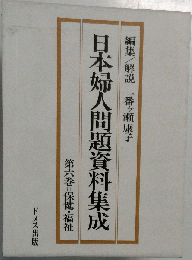 編集/解説 一番ヶ瀬康子
日本婦人問題資料集成
第六巻=保健・福祉
ドメス出版